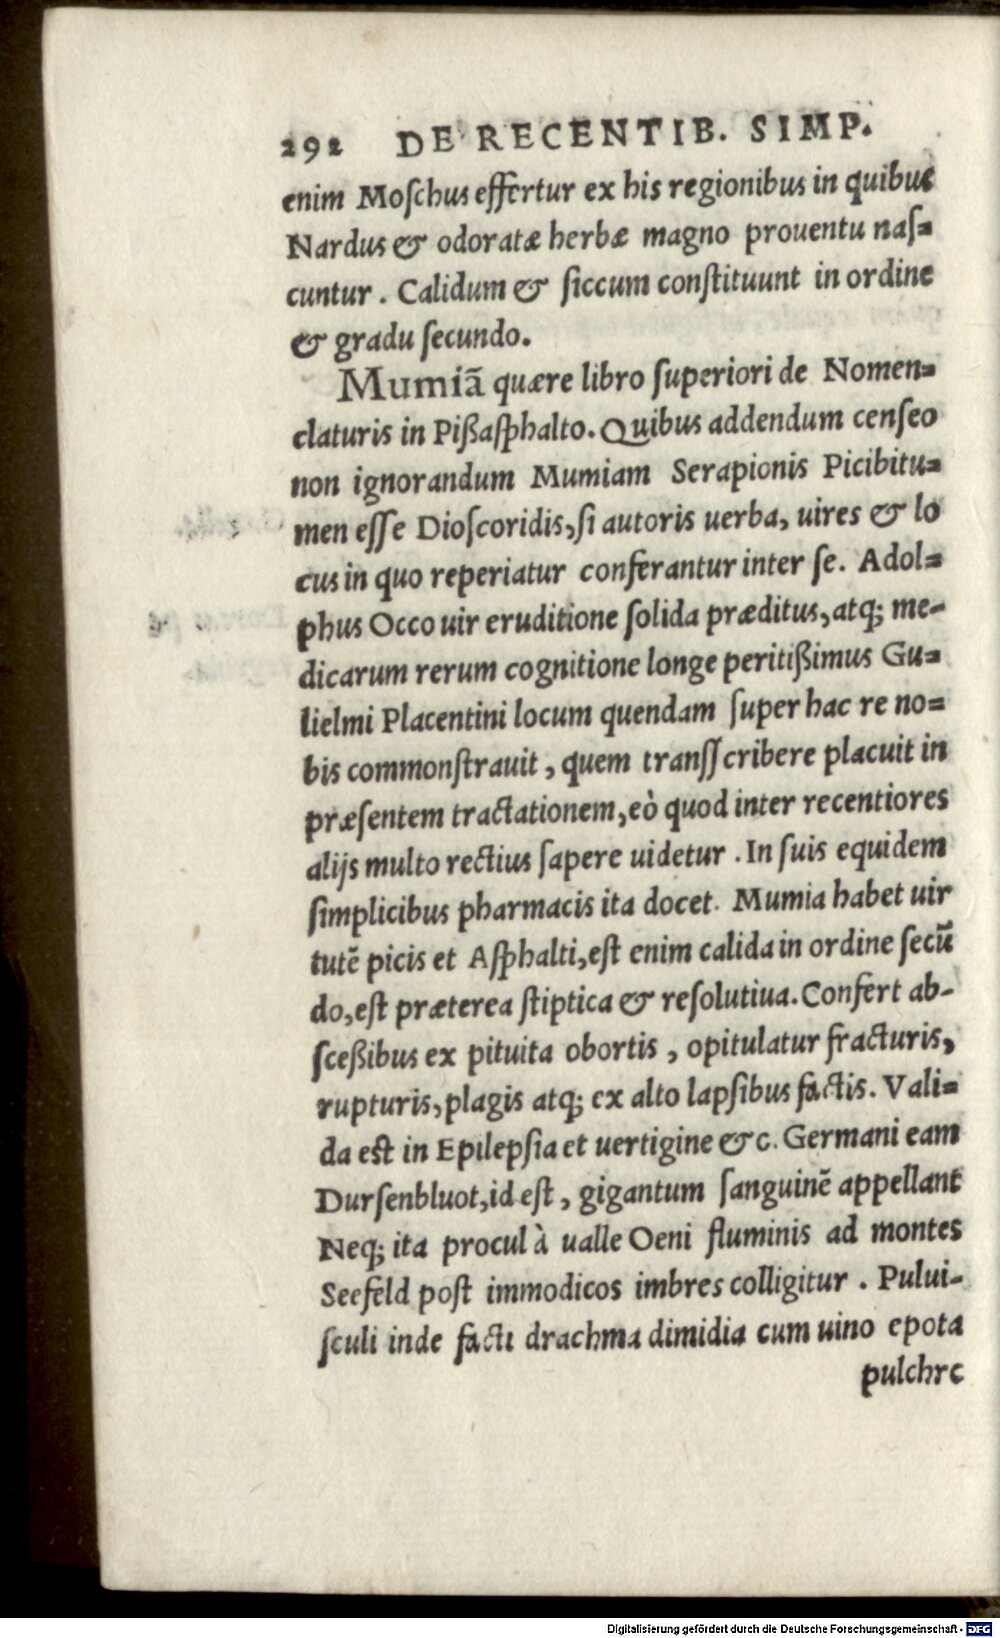 292 DE RECENTIB. SIMP.
enim Moſchus effertur ex his regionibus in quibus
Nardus & odoratæ herbæ magno prouentu naſ=
cuntur. Calidum & ſiccum conſtituunt in ordine
& gradu ſecundo.
Mumiã quære libro ſuperiori de Nomen=
claturis in Pißaſphalto. Quibus addendum cenſeo
non ignorandum Mumiam Serapionis Picibitu=
men eſſe Dioſcoridis, ſi autoris uerba, uires & lo
cus in quo reperiatur conferantur inter ſe. Adol=
phus Occo uir eruditione ſolida præditus, atq; me-
dicarum rerum cognitione longe peritißimus Gu=
lielmi Placentini locum quendam ſuper hac re no=
bis commonſtrauit, quem transſcribere placuit in
præſentem tractationem, eò quod inter recentiores
alijs multo rectius ſapere uidetur. In ſuis equidem
ſimplicibus pharmacis ita docet. Mumia habet uir
tutẽ picis et Aſphalti, eſt enim calida in ordine ſecũ
do, eſt præterea ſtiptica & reſolutiua. Confert ab-
ſceßibus ex pituita obortis, opitulatur fracturis,
rupturis, plagis atq; ex alto lapſibus factis. Vali=
da est in Epilepſia et uertigine &c. Germani eam
Durſenbluot, id eſt, gigantum ſanguinẽ appellant
Neq; ita procul à ualle Oeni fluminis ad montes
Seefeld poſt immodicos imbres colligitur. Pului-
ſculi inde facti drachma dimidia cum uino epota
pulchre
Digitalisierung gefördert durch die Deutsche Forschungsgemeinschaft - DFG